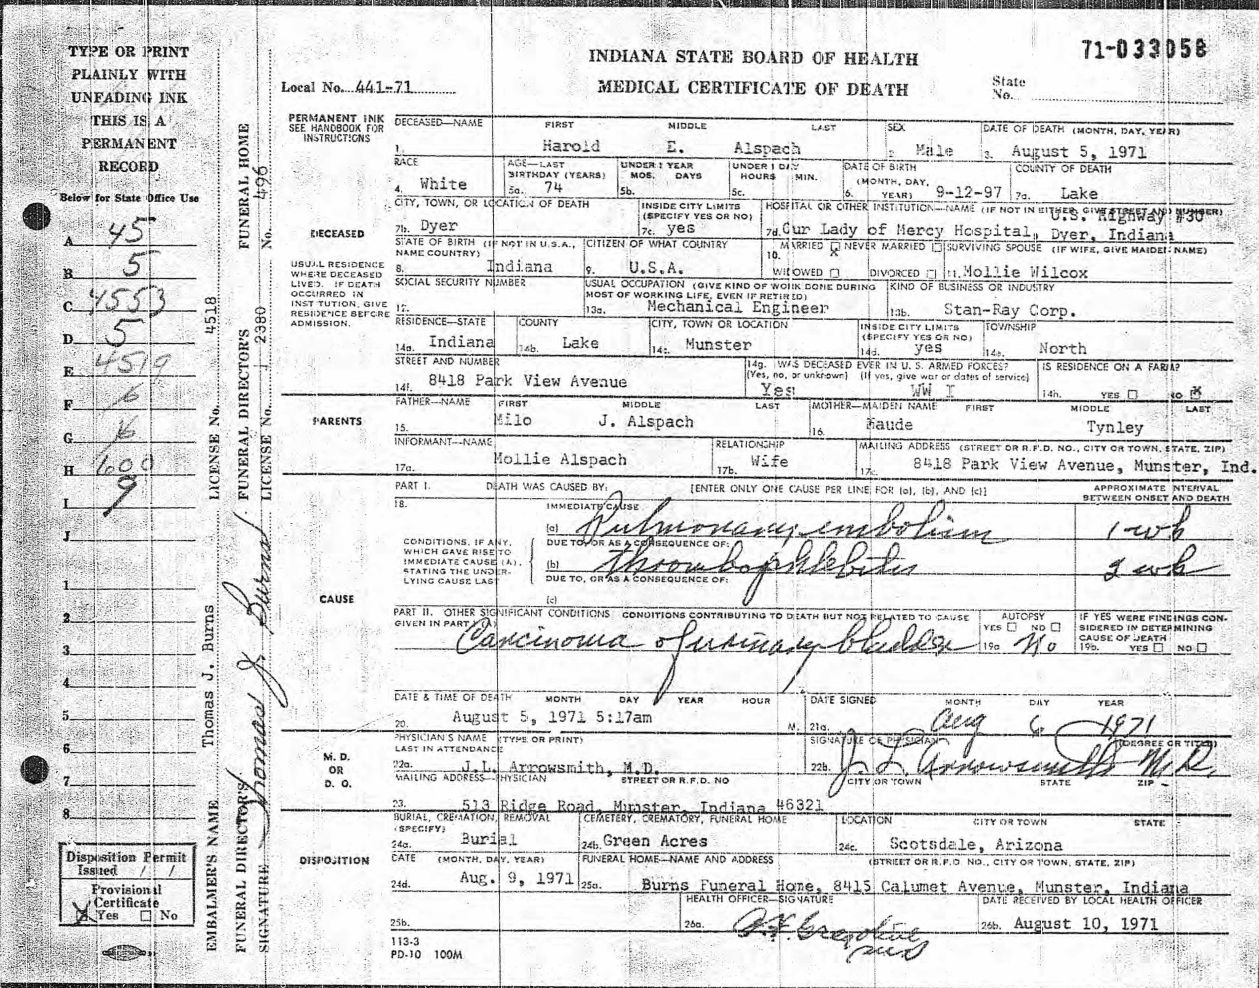 71-033058
INDIANA STATE BOARD OF HEALTH
MEDICAL CERTIFICATE OF DEATH
Local No. 441-71
State No.
TYPE OR PRINT
PLAINLY WITH
UNFADING INK
THIS IS A
PERMANENT
RECORD
Below for State Office Use
A 45
B 5
C 4553
D 5
E 4519
F 6
G 16
H 600
I 9
J
1
2
3
4
5
6
7
8
Disposition Permit
Issued / /
Provisional
Certificate
X Yes ☐ No
EMBALMER'S NAME Thomas J. Burns LICENSE No. 4518
FUNERAL DIRECTOR'S SIGNATURE Thomas J. Burns FUNERAL DIRECTOR'S LICENSE No. 2380 FUNERAL HOME No. 496
PERMANENT INK
SEE HANDBOOK FOR
INSTRUCTIONS
DECEASED
USUAL RESIDENCE
WHERE DECEASED
LIVED. IF DEATH
OCCURRED IN
INSTITUTION, GIVE
RESIDENCE BEFORE
ADMISSION.
DECEASED—NAME FIRST MIDDLE LAST SEX DATE OF DEATH (MONTH, DAY, YEAR)
1. Harold E. Alspach 2. Male 3. August 5, 1971
RACE AGE—LAST BIRTHDAY (YEARS) UNDER 1 YEAR MOS. DAYS UNDER 1 DAY HOURS MIN. DATE OF BIRTH (MONTH, DAY, YEAR) COUNTY OF DEATH
4. White 5a. 74 5b. 5c. 6. 9-12-97 7a. Lake
CITY, TOWN, OR LOCATION OF DEATH INSIDE CITY LIMITS (SPECIFY YES OR NO) HOSPITAL OR OTHER INSTITUTION—NAME (IF NOT IN EITHER, GIVE STREET AND NUMBER)
U.S. Highway #30
7b. Dyer 7c. yes 7d. Our Lady of Mercy Hospital, Dyer, Indiana
STATE OF BIRTH (IF NOT IN U.S.A., NAME COUNTRY) CITIZEN OF WHAT COUNTRY MARRIED ☒ NEVER MARRIED ☐ SURVIVING SPOUSE (IF WIFE, GIVE MAIDEN NAME)
8. Indiana 9. U.S.A. 10. WIDOWED ☐ DIVORCED ☐ 11. Mollie Wilcox
SOCIAL SECURITY NUMBER USUAL OCCUPATION (GIVE KIND OF WORK DONE DURING MOST OF WORKING LIFE, EVEN IF RETIRED) KIND OF BUSINESS OR INDUSTRY
12. 13a. Mechanical Engineer 13b. Stan-Ray Corp.
RESIDENCE—STATE COUNTY CITY, TOWN OR LOCATION INSIDE CITY LIMITS (SPECIFY YES OR NO) TOWNSHIP
14a. Indiana 14b. Lake 14c. Munster 14d. yes 14e. North
STREET AND NUMBER 14g. WAS DECEASED EVER IN U. S. ARMED FORCES? (Yes, no, or unknown) (If yes, give war or dates of service) IS RESIDENCE ON A FARM?
14f. 8418 Park View Avenue Yes WW I 14h. YES ☐ NO ☒
PARENTS
FATHER—NAME FIRST MIDDLE LAST MOTHER—MAIDEN NAME FIRST MIDDLE LAST
15. Milo J. Alspach 16. Maude Tynley
INFORMANT—NAME RELATIONSHIP MAILING ADDRESS (STREET OR R.F.D. NO., CITY OR TOWN, STATE, ZIP)
17a. Mollie Alspach 17b. Wife 17c. 8418 Park View Avenue, Munster, Ind.
CAUSE
PART I. DEATH WAS CAUSED BY: [ENTER ONLY ONE CAUSE PER LINE FOR (a), (b), AND (c)] APPROXIMATE INTERVAL BETWEEN ONSET AND DEATH
18. IMMEDIATE CAUSE
(a) Pulmonary embolism 1 wk
CONDITIONS, IF ANY, WHICH GAVE RISE TO IMMEDIATE CAUSE (A), STATING THE UNDERLYING CAUSE LAST
DUE TO, OR AS A CONSEQUENCE OF:
(b) thrombophlebitis 2 wk
DUE TO, OR AS A CONSEQUENCE OF:
(c)
PART II. OTHER SIGNIFICANT CONDITIONS CONDITIONS CONTRIBUTING TO DEATH BUT NOT RELATED TO CAUSE GIVEN IN PART I (A) AUTOPSY YES ☐ NO ☐ IF YES WERE FINDINGS CONSIDERED IN DETERMINING CAUSE OF DEATH
Carcinoma of urinary bladder 19a. No 19b. YES ☐ NO ☐
DATE & TIME OF DEATH MONTH DAY YEAR HOUR DATE SIGNED MONTH DAY YEAR
20. August 5, 1971 5:17am M. 21a. Aug 6, 1971
M. D.
OR
D. O.
PHYSICIAN'S NAME (TYPE OR PRINT) LAST IN ATTENDANCE SIGNATURE OF PHYSICIAN (DEGREE OR TITLE)
22a. J.L. Arrowsmith, M.D. 22b. J. L. Arrowsmith M.D.
MAILING ADDRESS—PHYSICIAN STREET OR R.F.D. NO CITY OR TOWN STATE ZIP
23. 513 Ridge Road, Munster, Indiana 46321
DISPOSITION
BURIAL, CREMATION, REMOVAL (SPECIFY) CEMETERY, CREMATORY, FUNERAL HOME LOCATION CITY OR TOWN STATE
24a. Burial 24b. Green Acres 24c. Scotsdale, Arizona
DATE (MONTH, DAY, YEAR) FUNERAL HOME—NAME AND ADDRESS (STREET OR R.F.D. NO., CITY OR TOWN, STATE, ZIP)
24d. Aug. 9, 1971 25a. Burns Funeral Home, 8415 Calumet Avenue, Munster, Indiana
HEALTH OFFICER—SIGNATURE DATE RECEIVED BY LOCAL HEALTH OFFICER
25b. 26a. 26b. August 10, 1971
113-3
PD-10 100M